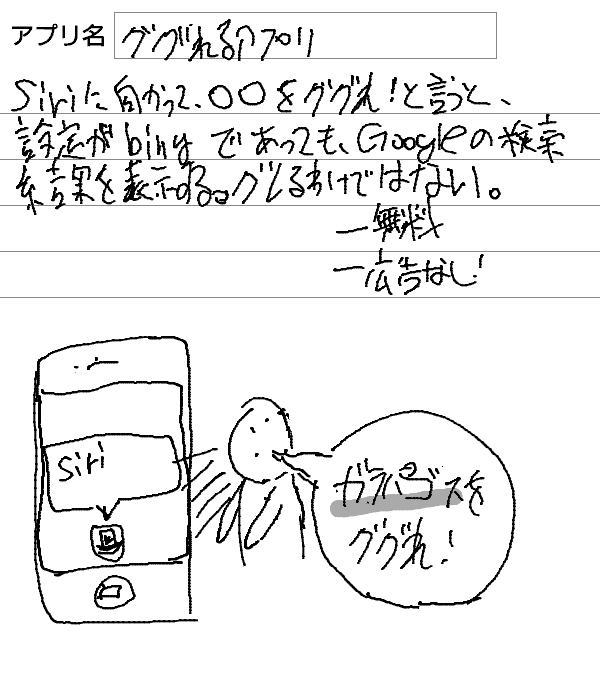 アプリ名 ググれるアプリ
Siriに向かって、〇〇をググれ!と言うと、
設定がbingであっても、Googleの検索
結果を表示する。グレるわけではない。
ー無料
ー広告なし!
Siri
ガラパゴスを
ググれ!